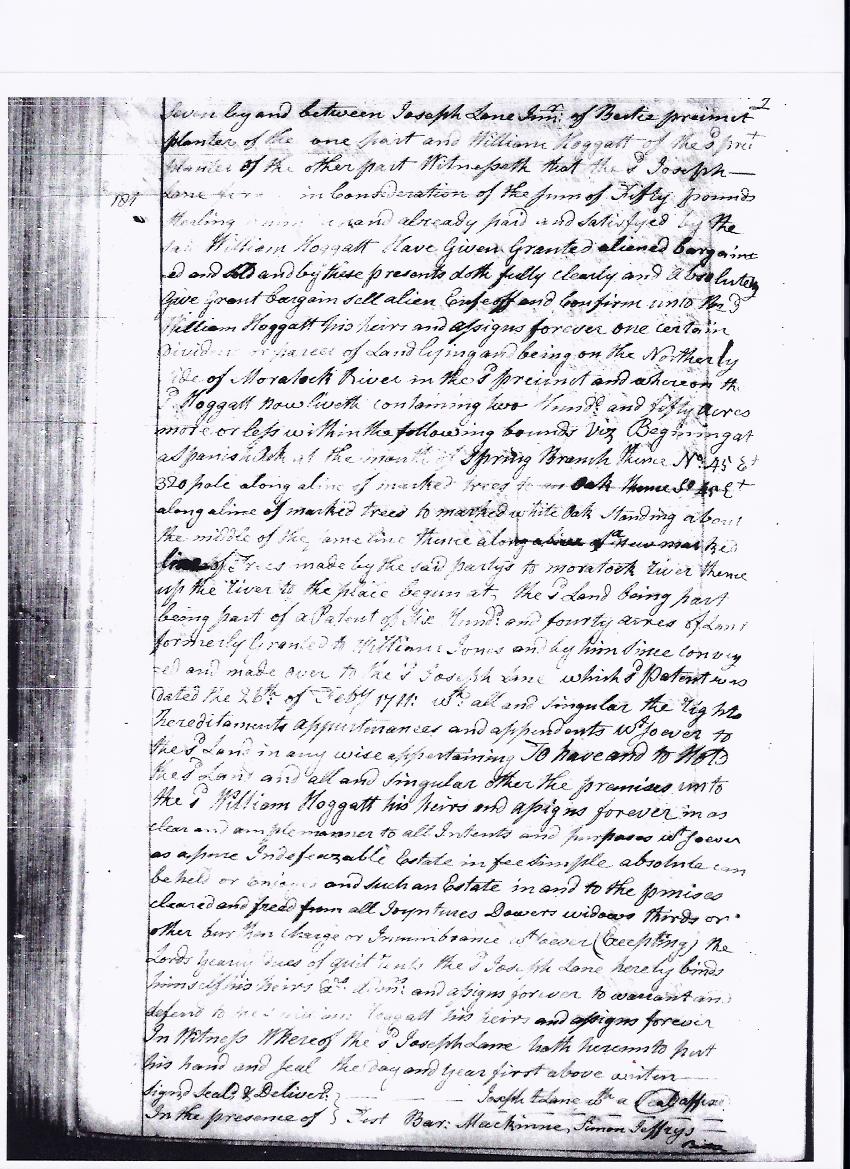 2
Seven by and between Joseph Lane Junr. of Bertie precinct
planter of the one part and William Hoggatt of the sd prct
planter of the other part Witnesseth that the sd Joseph
187
Lane for in Consideration of the sum of Fifty pounds
Sterling in hand already paid and satisfyed by the
said William Hoggatt Have Given Granted aliened bargain
ed and sold and by these presents doth fully clearly and Absolutely
Give Grant bargain sell alien Enfeoff and Confirm unto the sd
William Hoggatt his heirs and assigns forever one certain
Dividend or parcel of Land lying and being on the Northerly
side of Moratock River in the sd precinct and whereon the
sd Hoggatt Now liveth containing two hundd. and fifty acres
more or less within the following bounds Viz Begining at
a Spanish Oak at the mouth of Spring Branch thence No. 45 Et
320 pole along a line of marked trees to an Oak thence So 45 Et
along a line of marked trees to marked white Oak Standing about
the middle of the same line thence along a line of a new marked
line of Trees made by the said partys to moratock river thence
up the river to the place begun at, the sd Land being part
being part of a Patent of Six hundd. and fourty acres of Land
formerly Granted to William Jones and by him since convey
=ed and made over to the sd Joseph Lane which sd Patent was
dated the 26th. of Feby 1711: wth. all and singular the rights
hereditaments appurtenances and appendents wt soever to
the sd Land in any wise appertaining To have and to Hold
the sd Land and all and singular other the premises unto
the sd William Hoggatt his heirs and assigns forever in as
clear and ample manner to all Intents and purposes wt soever
as a pure Indefeazable Estate in fee simple absolute can
be held or enjoyed and such an Estate in and to the pmises
cleared and freed from all Joyntures Dowers widows thirds or
other burthen Charge or Incumbrance wt soever (Excepting) the
Lords yearly dues of quit rents the sd Joseph Lane hereby binds
himself his heirs Exrs. admrs. and assigns forever to warrant and
defend to the said Wm Hoggatt his heirs and assigns forever
In Witness Whereof the sd Joseph Lane hath hereunto put
his hand and seal the day and year first above writen
signd Seald & Deliverd. Joseph Lane wth a (Seal) affixed
In the presence of } Test Bar: Mackinne, Simon Jeffrys